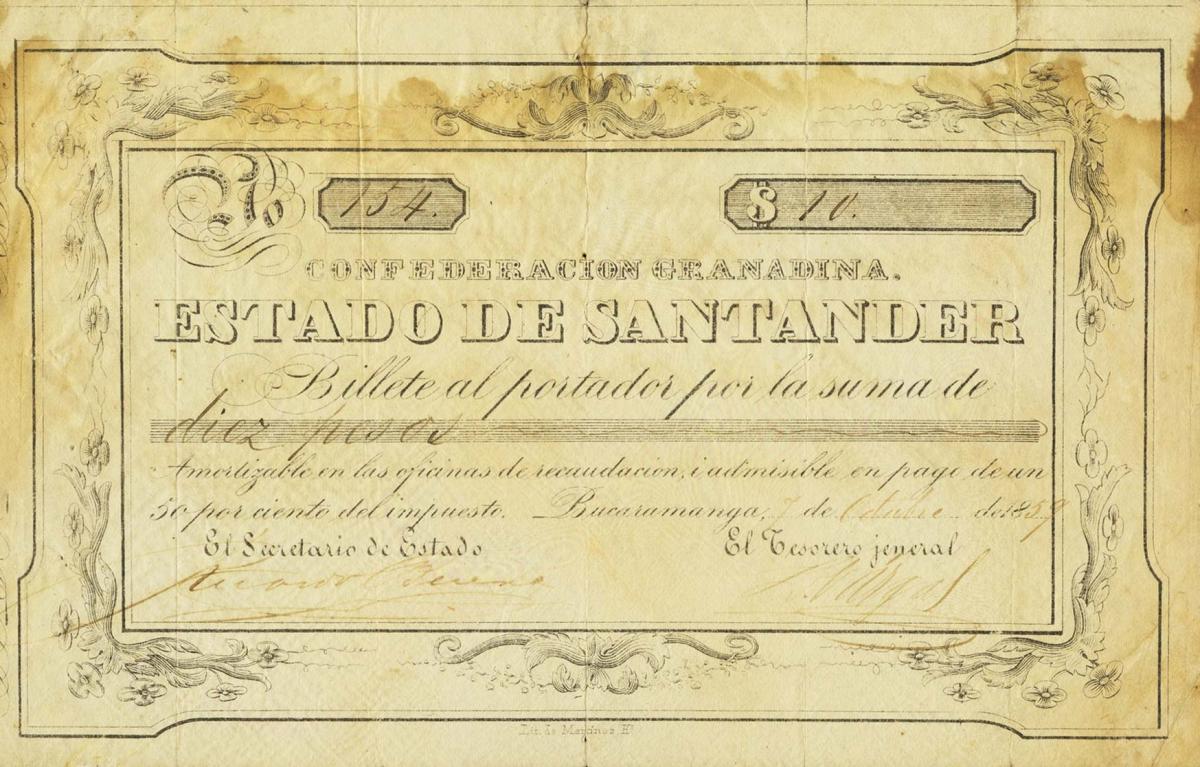 No 154. $ 10.
CONFEDERACION GRANADINA.
ESTADO DE SANTANDER
Billete al portador por la suma de
diez pesos
Amortizable en las oficinas de recaudacion, i admisible en pago de un
50 por ciento del impuesto. Bucaramanga, 7 de Octubre de 1859
El Secretario de Estado El Tesorero jeneral
Lit. de Martinez Hº